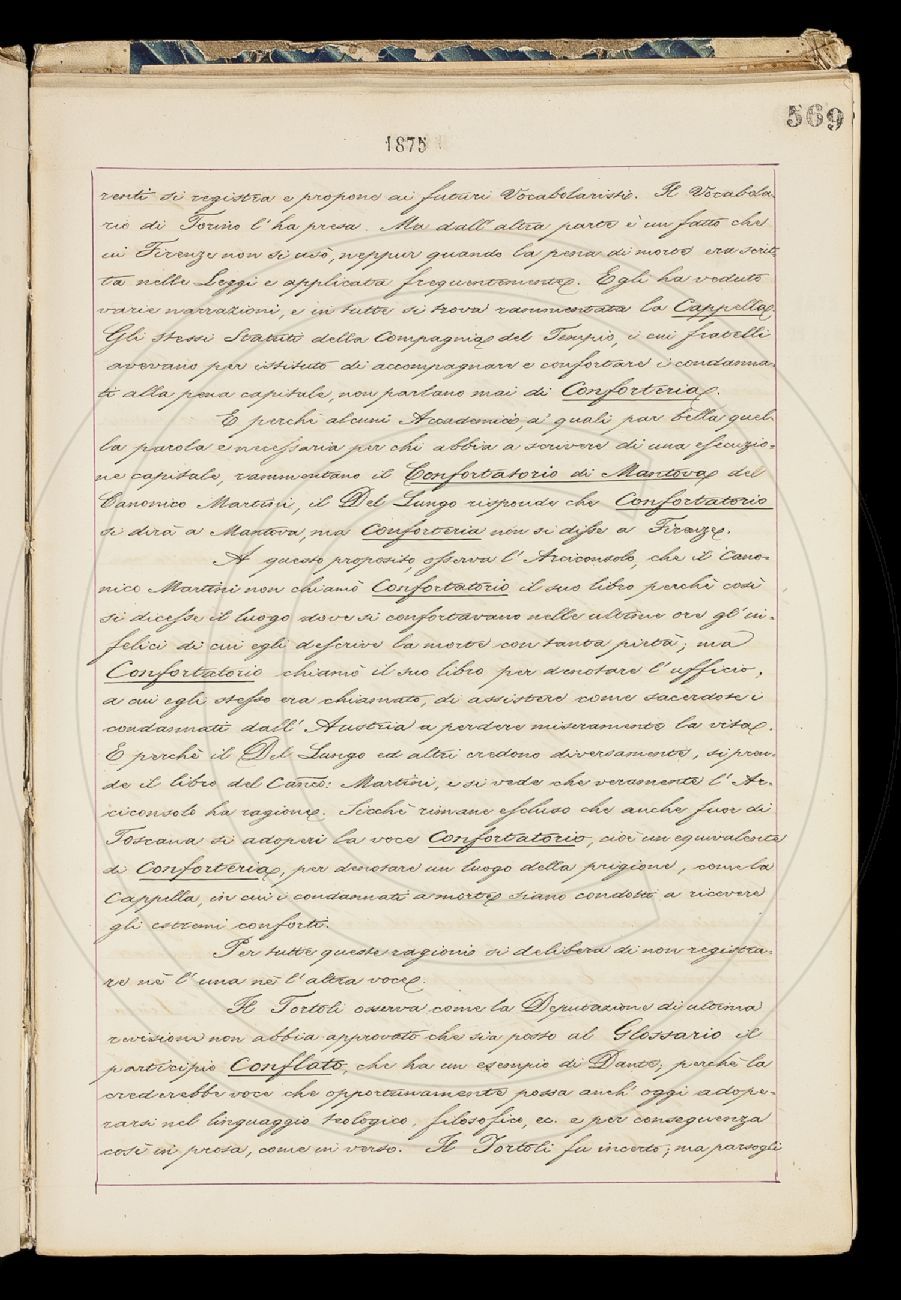 569
1875
renti si registra e propone ai futuri Vocabolaristi. Il Vocabola-
rio di Torino l'ha presa. Ma dall'altra parte è un fatto che
in Firenze non si usò, neppur quando la pena di morte era scrit-
ta nelle Leggi e applicata frequentemente. Egli ha veduto
varie narrazioni, e in tutte si trova rammentata la Cappella.
Gli stessi Statuti della Compagnia del Tempio, i cui fratelli
avevano per istituto di accompagnare e confortare i condanna-
ti alla pena capitale, non parlano mai di Conforteria.
E perchè alcuni Accademici, a' quali par bella quel-
la parola e necessaria per chi abbia a scrivere di una esecuzio-
ne capitale, rammentano il Confortatorio di Mantova del
Canonico Martini, il Del Lungo risponde che Confortatorio
si dirà a Mantova, ma Conforteria non si disse a Firenze.
A questo proposito, osserva l'Arciconsolo, che il Cano-
nico Martini non chiamò Confortatorio il suo libro perchè così
si dicesse il luogo dove si confortavano nelle ultime ore gl'in-
felici di cui egli descrive la morte con tanta pietà; ma
Confortatorio chiamò il suo libro per denotare l'ufficio,
a cui egli stesso era chiamato, di assistere come sacerdote i
condannati dall'Austria a perdere miseramente la vita.
E perchè il Del Lungo ed altri credono diversamente, si pren-
de il libro del Canco: Martini, e si vede che veramente l'Ar-
ciconsolo ha ragione. Sicchè rimane escluso che anche fuor di
Toscana si adoperi la voce Confortatorio, cioè un equivalente
di Conforteria, per denotare un luogo della prigione, come la
Cappella, in cui i condannati a morte siano condotti a ricevere
gli estremi conforti.
Per tutte queste ragioni si delibera di non registra-
re nè l'una nè l'altra voce.
Il Tortoli osserva come la Deputazione di ultima
revisione non abbia approvato che sia posto al Glossario il
participio Conflato, che ha un esempio di Dante; perchè la
crederebbe voce che opportunamente possa anch'oggi adope-
rarsi nel linguaggio teologico, filosofico, ec. e per conseguenza
così in prosa, come in verso. Il Tortoli fu incerto; ma parsogli